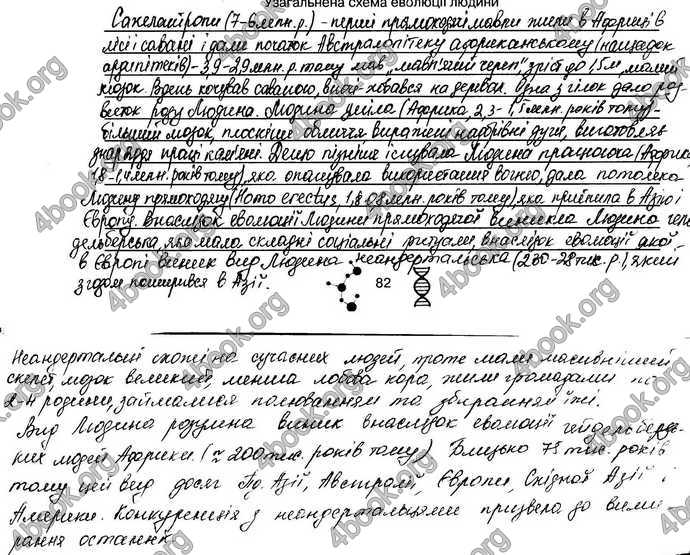 Узагальнена схема еволюції людини
Сахелантропи (7-6 млн.р.) - перші прямоходячі мавпи жили в Африці в
лісі і савані і дали початок Австралопітеку африканському (нащадок
ардипітеків) - 3,9-2,9 млн. р. тому мав „мавп'ячий череп", зріст до 1,5 м, малий
мозок. Вдень кочував саваною, вночі ховався на деревах. Одна з гілок дала роз-
виток роду Людина. Людина уміла (Африка, 2,3-1,5 млн. років тому) -
більший мозок, плоскіше обличчя виражені надбрівні дуги, виготовляв
знаряддя праці кам'яні. Дещо пізніше існувала Людина працююча (Африка
1,8-1,4 млн. років тому), яка опанувала використання вогню, дала потомка
Людину прямоходячу (Homo erectus, 1,8 млн. років тому), яка прийшла в Азію і
Європу. Внаслідок еволюції Людини прямоходячої виникла Людина гей-
дельберська, яка мала складні соціальні ритуали, внаслідок еволюції якої
в Європі виник вид Людина неандертальська (230-28 тис. р.), який
згодом поширився в Азії.
82
Неандертальці схожі на сучасних людей, проте мали масивніший
скелет, мозок великий, менша лобова кора, жили громадами по
2-4 родини, займалися полюванням та збиранням їжі.
Вид Людина розумна виник внаслідок еволюції гейдельбер
ких людей Африки. (≈ 200 тис. років тому) Близько 75 тис. років
тому цей вид досяг Пд. Азії, Австралії, Європи, Східної Азії і
Америки. Конкуренція з неандертальцями призвела до вими-
рання останніх.
4book.org